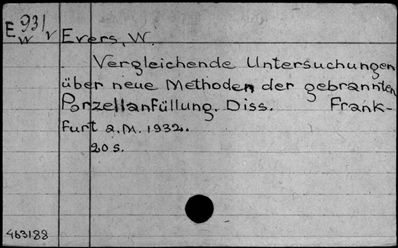 E 931
w v Evers, W.
Vergleichende Untersuchungen
über neue Methoden der gebrannten
Porzellanfüllung. Diss. Frank-
furt a.M. 1932.
20 s.
463188